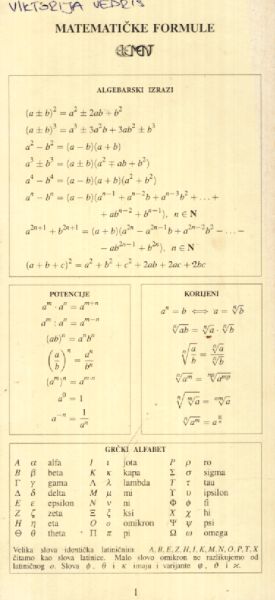 VIKTORIJA VEDRIŠ
MATEMATIČKE FORMULE
ELEMENT
ALGEBARSKI IZRAZI
(a ± b)² = a² ± 2ab + b²
(a ± b)³ = a³ ± 3a²b + 3ab² ± b³
a² − b² = (a − b)(a + b)
a³ ± b³ = (a ± b)(a² ∓ ab + b²)
a⁴ − b⁴ = (a − b)(a + b)(a² + b²)
aⁿ − bⁿ = (a − b)(aⁿ⁻¹ + aⁿ⁻²b + aⁿ⁻³b² + … +
+ abⁿ⁻² + bⁿ⁻¹), n ∈ N
a²ⁿ⁺¹ + b²ⁿ⁺¹ = (a + b)(a²ⁿ − a²ⁿ⁻¹b + a²ⁿ⁻²b² − … −
− ab²ⁿ⁻¹ + b²ⁿ), n ∈ N
(a + b + c)² = a² + b² + c² + 2ab + 2ac + 2bc
POTENCIJE
aᵐ · aⁿ = aᵐ⁺ⁿ
aᵐ : aⁿ = aᵐ⁻ⁿ
(ab)ⁿ = aⁿbⁿ
(a/b)ⁿ = aⁿ/bⁿ
(aᵐ)ⁿ = aᵐ·ⁿ
a⁰ = 1
a⁻ⁿ = 1/aⁿ
KORIJENI
aⁿ = b ⟺ a = ⁿ√b
ⁿ√(ab) = ⁿ√a · ⁿ√b
ⁿ√(a/b) = ⁿ√a / ⁿ√b
ⁿ√(aᵐ) = ⁿᵖ√(aᵐᵖ)
ⁿ√(ᵐ√a) = ᵐⁿ√a
ⁿ√(aᵐ) = a^(m/n)
GRČKI ALFABET
Α α alfa Ι ι jota Ρ ρ ro
Β β beta Κ κ kapa Σ σ sigma
Γ γ gama Λ λ lambda Τ τ tau
Δ δ delta Μ μ mi Υ υ ipsilon
Ε ε epsilon Ν ν ni Φ ϕ fi
Ζ ζ zeta Ξ ξ ksi Χ χ hi
Η η eta Ο ο omikron Ψ ψ psi
Θ θ theta Π π pi Ω ω omega
Velika slova identička latiničnim A, B, E, Z, H, I, K, M, N, O, P, T, X
čitamo kao slova latinice. Malo slovo omikron ne razlikujemo od
latiničnog o. Slova ϕ, θ i κ imaju i varijante φ, ϑ i ϰ.
1